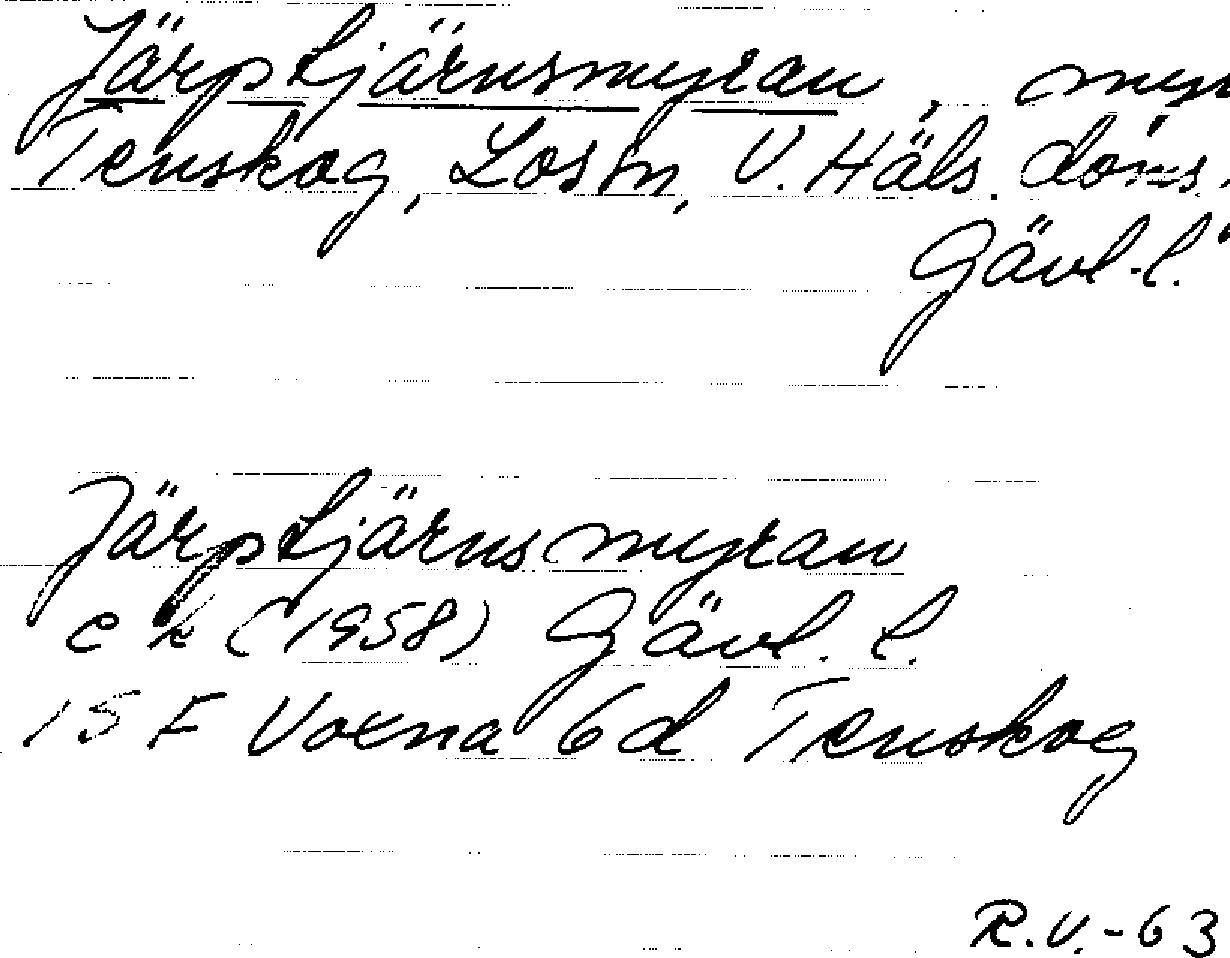 Järptjärnsmyran, myr
Tenskog, Los sn, V. Häls. doms.
Gävl. l.
Järptjärnsmyran
e k (1958) Gävl. l.
15 F Voxna 6d Tenskog
R.V.-63